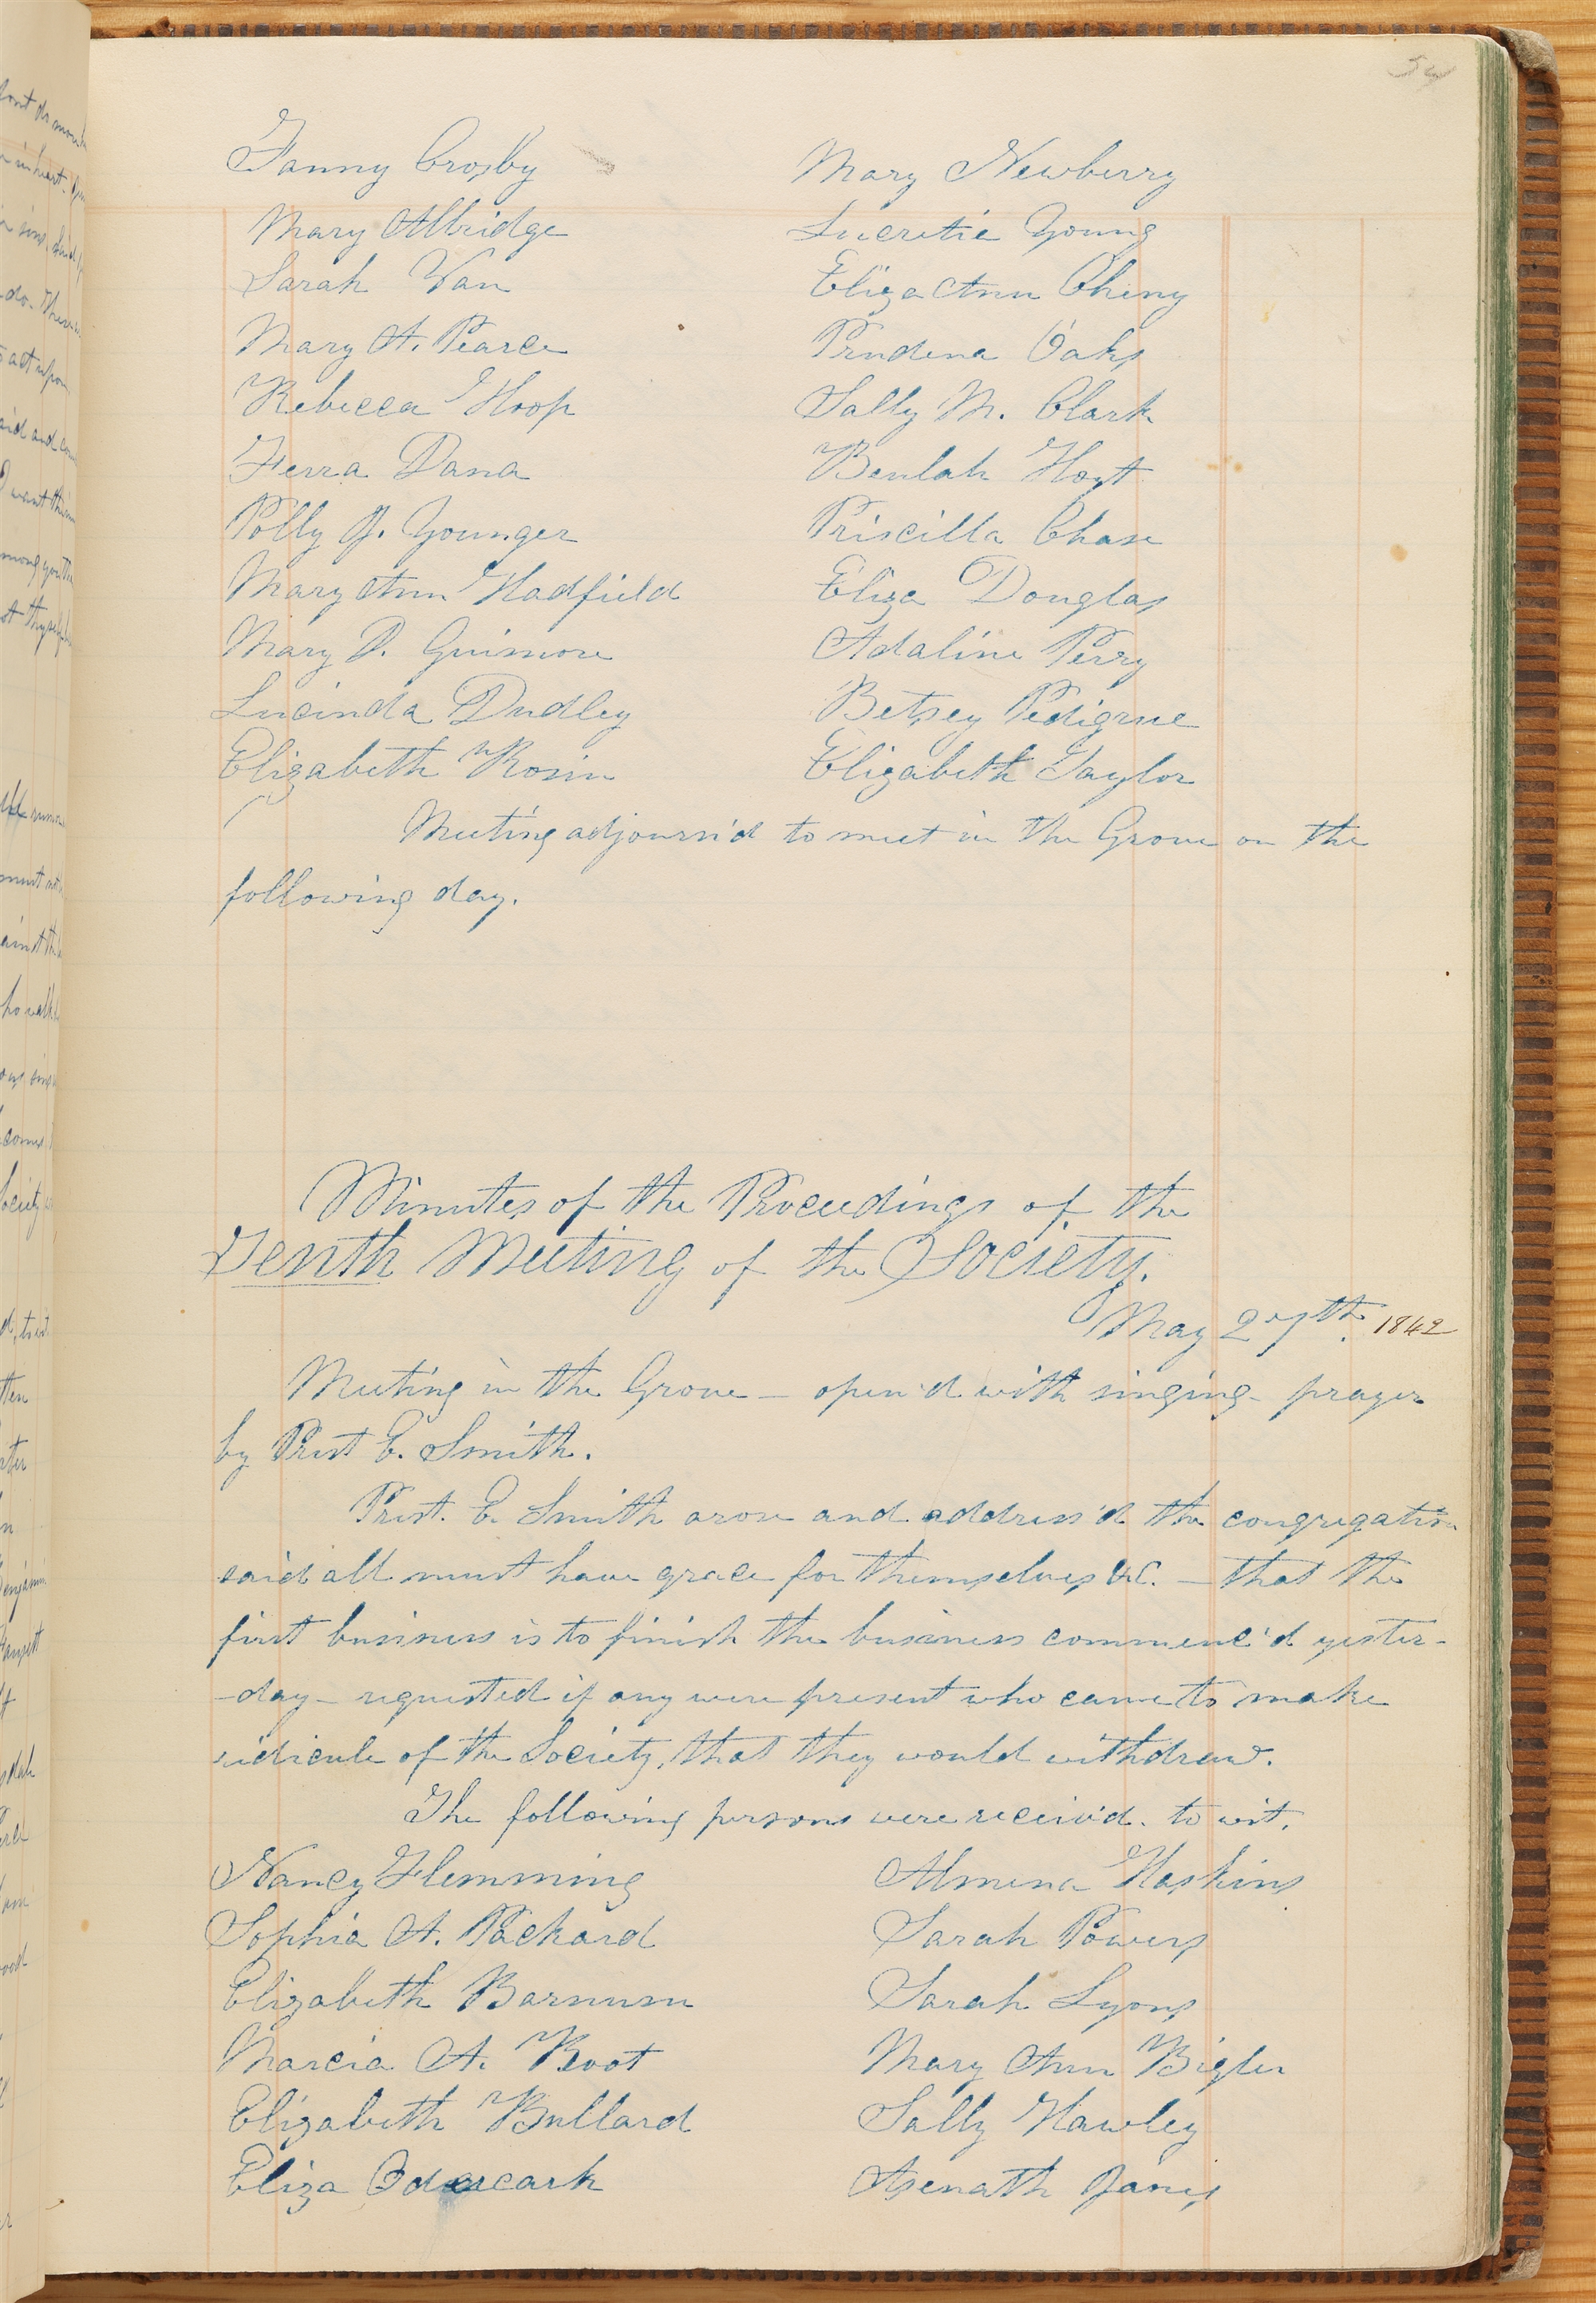 54
Fanny Crosby Mary Newberry
Mary Albridge Lucretia Young
Sarah Van Eliza Ann Cheny
Mary A. Pearce Prudena Oaks
Rebecca Hoop Sally M. Clark
Ferra Dana Beulah Hoyt
Polly J. Younger Priscilla Chase
Mary Ann Hadfield Eliza Douglas
Mary D. Guimore Adaline Perry
Lucinda Dudley Betsey Pedigrue
Elizabeth Rosin Elizabeth Taylor
Meeting adjourn'd to meet in the Grove on the
following day.
Minutes of the Proceedings of the
Tenth Meeting of the Society.
May 27th. 1842
Meeting in the Grove — open'd with singing - prayer
by Prest E. Smith.
Prest. E. Smith arose and address'd the congregation
said all must have grace for themselves &C. — that the
first business is to finish the business commenc'd yester-
-day - requested if any were present who came to make
ridicule of the Society, that they would withdraw.
The following persons were receiv'd. to wit,
Nancy Flemming Almena Haskins
Sophia A. Packard Sarah Powers
Elizabeth Barnum Sarah Lyons
Marcia A. Root Mary Ann Bigler
Elizabeth Bullard Sally Hawley
Eliza Asenath Janis